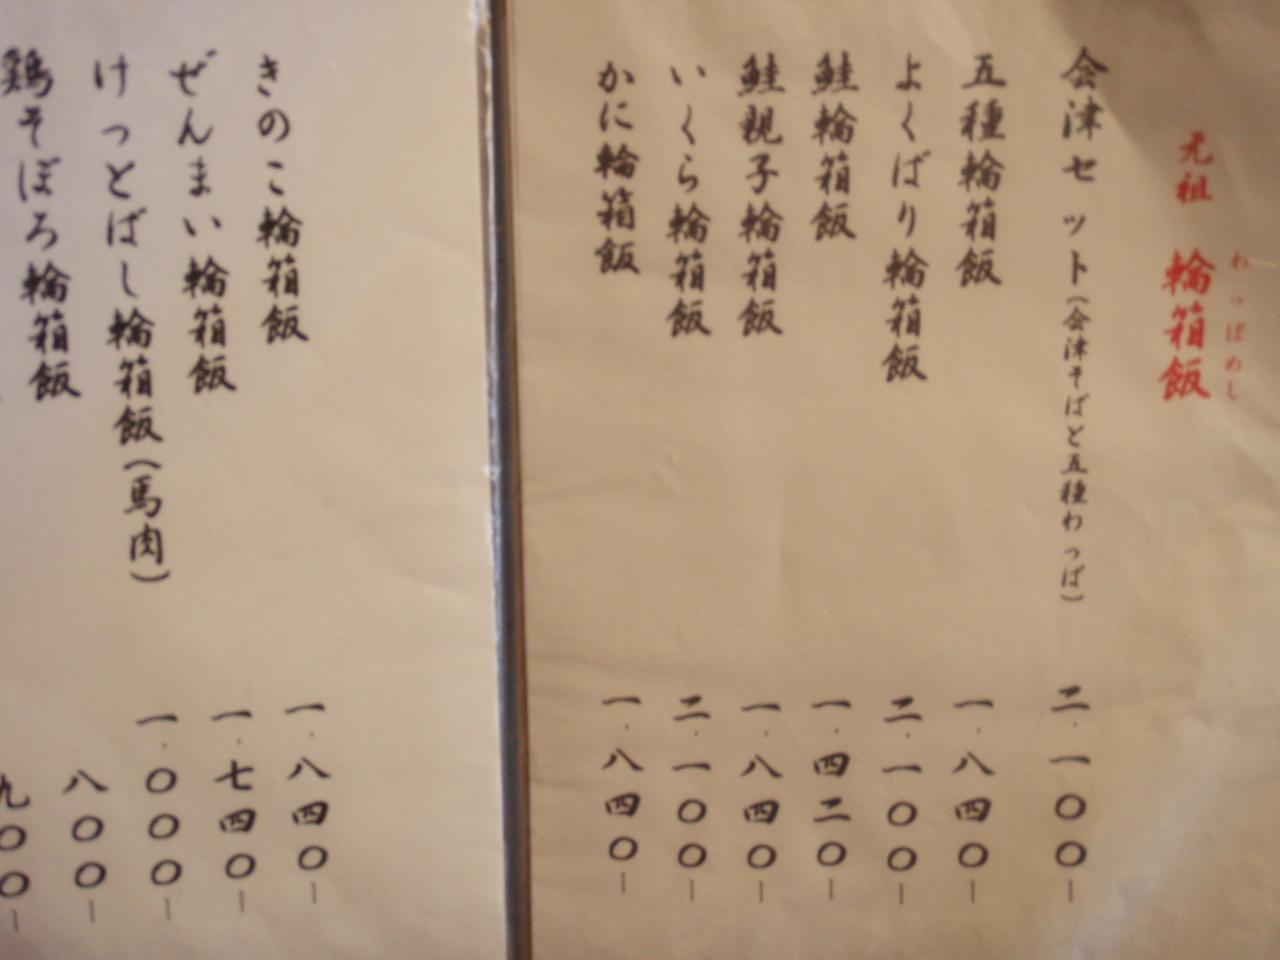 元祖 輪箱飯
わっぱめし
会津セット(会津そばと五種わっぱ) 二.一〇〇-
五種輪箱飯 一.八四〇-
よくばり輪箱飯 二.一〇〇-
鮭輪箱飯 一.四二〇-
鮭親子輪箱飯 一.八四〇-
いくら輪箱飯 二.一〇〇-
かに輪箱飯 一.八四〇-
きのこ輪箱飯 一.八四〇-
ぜんまい輪箱飯 一.七四〇-
けっとばし輪箱飯(馬肉) 一.〇〇〇-
鶏そぼろ輪箱飯 八〇〇-
九〇〇-